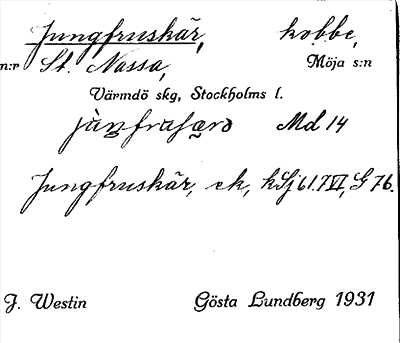 Jungfruskär, kobbe,
n:r St. Nassa, Möja s:n
Värmdö skg, Stockholms l.
Md 14
Jungfruskär, ek, kSj 61.7VI, G 76.
J. Westin Gösta Lundberg 1931